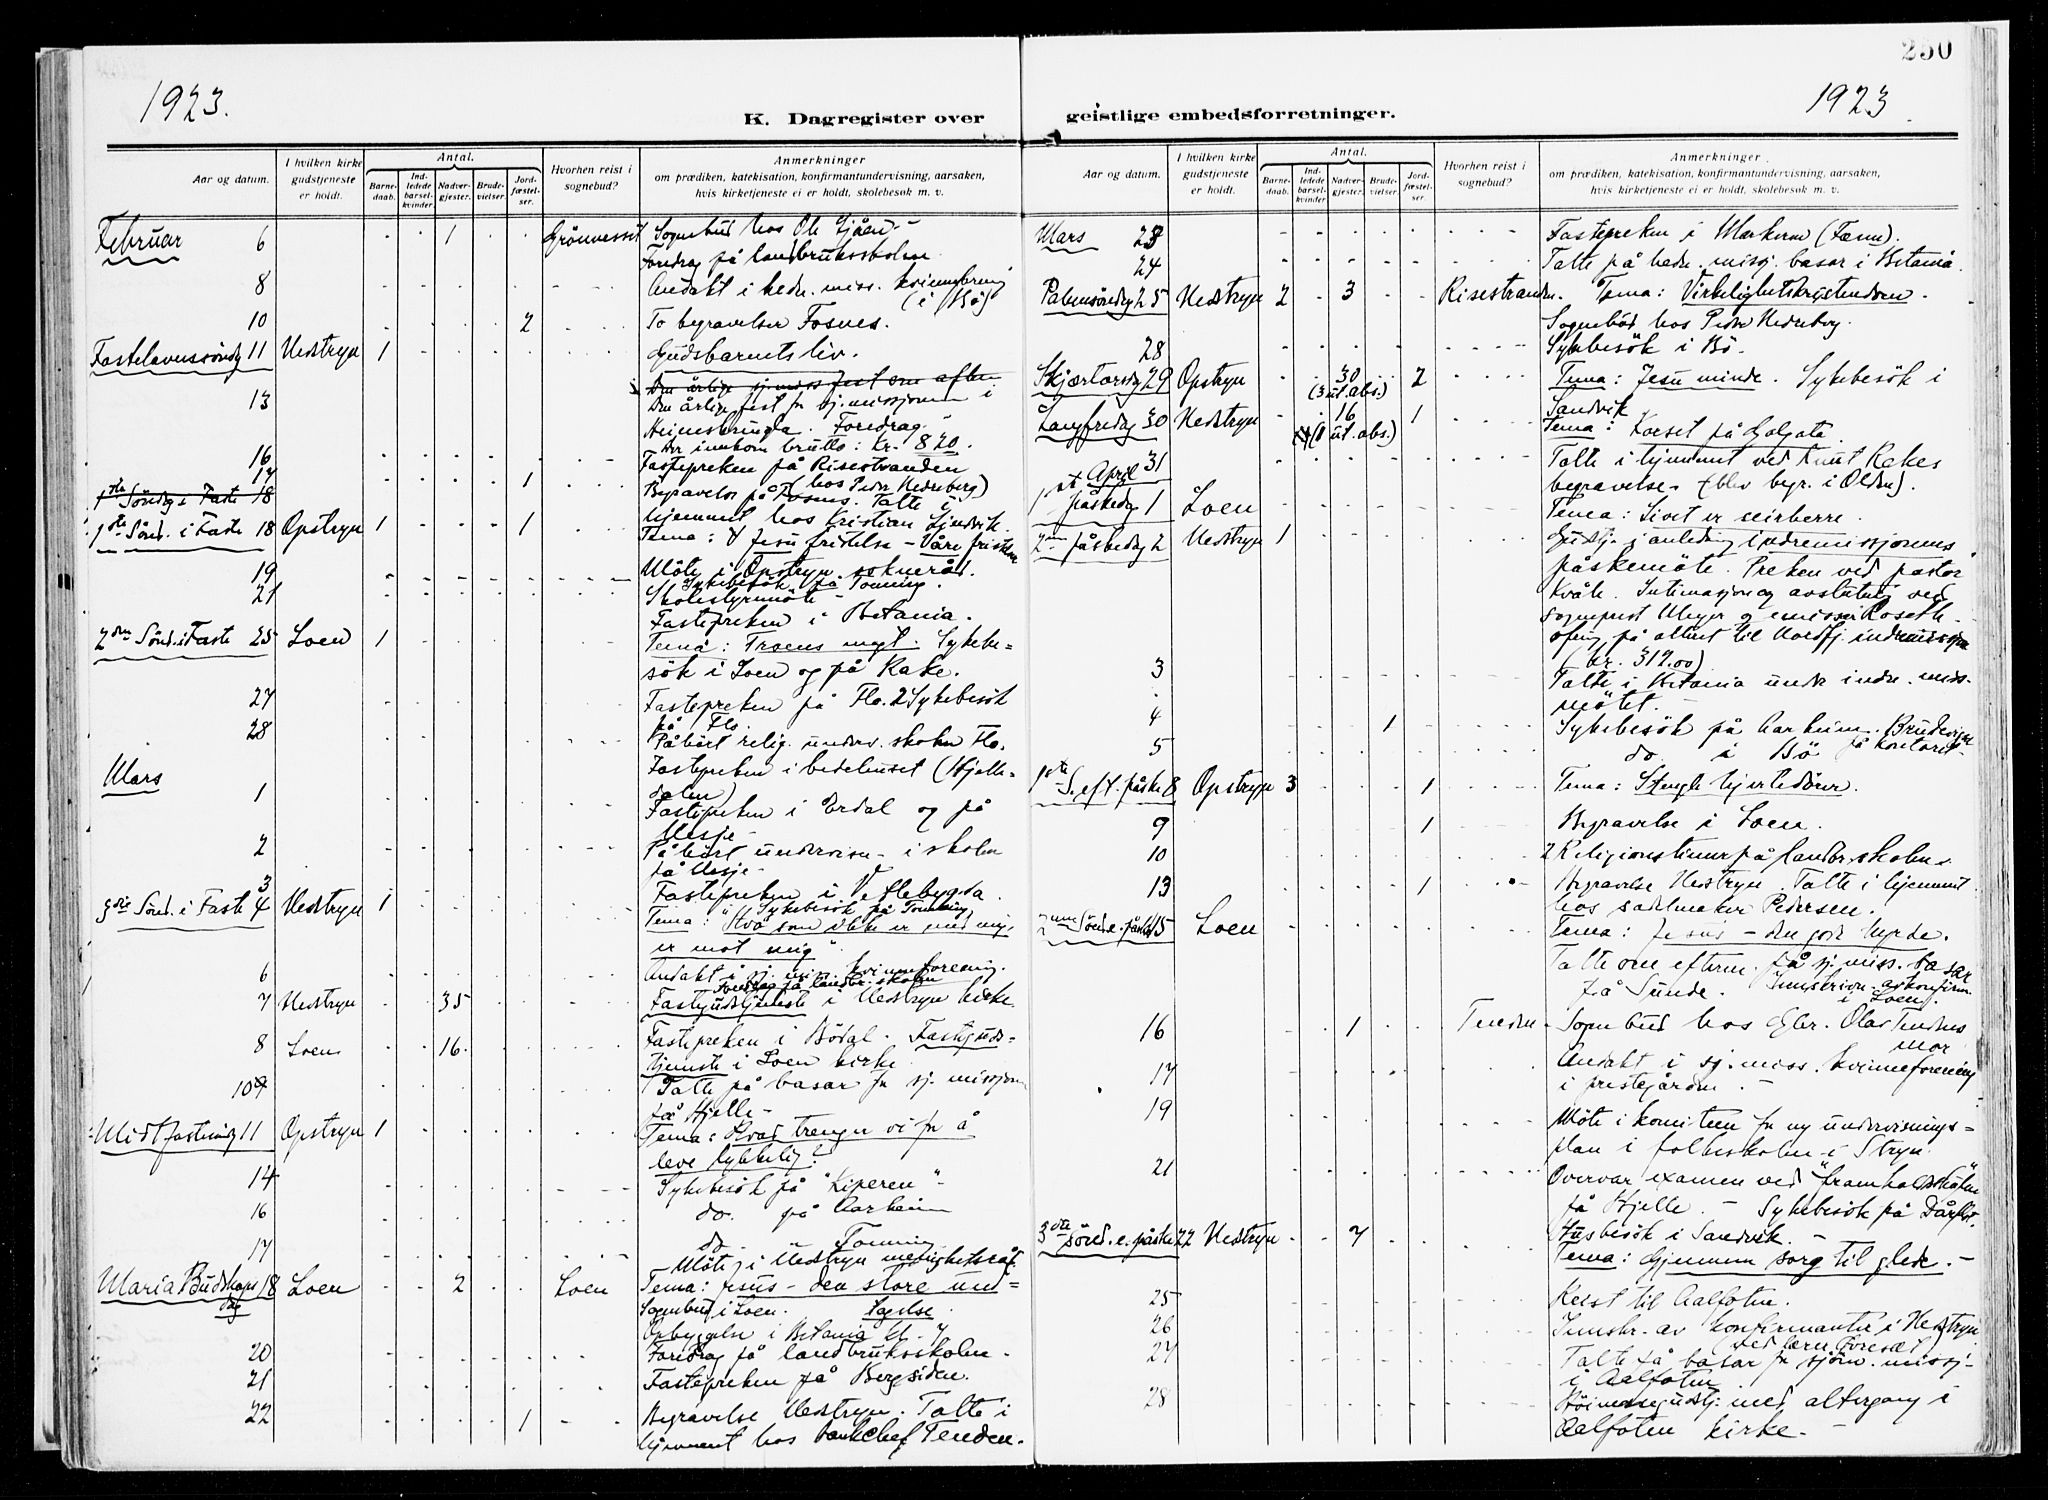 250
1923.
1923
K. Dagregister over
geistlige embedsforretninger.
Aar og datum.
I hvilken kirke gudstjeneste er holdt.
Antal.
Barnedaab.
Indledede barselkvinder.
Nadvergjester.
Brudevielser.
Jordfæstelser.
Hvorhen reist i sognebud?
Anmerkninger
om prædiken, katekisation, konfirmantundervisning, aarsaken,
hvis kirketjeneste ei er holdt, skolebesøk m. v.
Februar 6 1 Grönvesset Sognebud hos Ole
Foredrag på landbruksskolen
8 Andakt i hedn. miss. kvinneforening
(i Bö)
10 2 To begravelser Fosnes.
Fastelavnssöndg 11 Nedstryn 1 Gudsbarnets liv.
Den årlige sj.miss fest om aften
13 Den årlige fest for sj.missjonen i
Heimshringla. Foredrag.
Der innkom brutto: Kr. 820.
16 Fastepreken på Risestranden
17 1 (hos Peder Nedreberg)
1ste Söndg i Faste 18 Begravelse på Fosnes. Talte i
hjemmet hos Kristian
1ste Sönd. i Faste 18 Opstryn 1 1 Tema: Jesu fristelse – Våre fristelser
19 Möte i Opstryn sokneråd.
Sykebesök på Tonning.
21 Skolestyremöte –
Fastepreken i Betania.
2den Sönd. i Faste 25 Loen 1 Tema: Troens magt. Sykebe=
sök i Loen og på Rake.
27 Fastepreken på Flo. 2 Sykebesök
på Flo.
28 Påhört relig. underv. skolen Flo.
Fastepreken i bedehuset (Hjelle=
Mars
1 dalen)
Fastepreken i Erdal og på
Mesje –
2 Påhört undervisn. i skolen
på Mesje –
3 Fastepreken i Vetlebygda.
3die Sönd. i Faste 4 Nedstryn 1 Sykebesök på Tonning
Tema: "Hvo som ikke er med mig,
er mot mig".
6 Andakt i sj. miss. kvinneforening.
Foredrag på landbr. skolen
7 Nedstryn 35 Fastegudstjeneste i Nedstryn kirke
8 Loen 16. Fastepreken i Bödal. Fasteguds=
tjeneste i Loen kirke
10 Talte på basar for sj. missjonen
på Hjelle –
Midtfastesöndg 11 Opstryn 1 Tema: Hvad trenger vi for å
leve lykkelig?
14 Sykebesök på "Kiperen" –
16 do. på Aarheim
17 do Tonning
Möte i Nedstryn menighetsråd.
Maria Budskaps 18 Loen 2 Loen Tema: Jesus – den store und=
dag Sognebud i Loen. sagelse.
Opbyggelse i Betania kl. 7
20 Foredrag på landbruksskolen –
21 Fastepreken på Bergsiden.
22 1 Begravelse Nedstryn. Talte i
hjemmet hos bankchef Tenden.
Aar og datum.
I hvilken kirke gudstjeneste er holdt.
Antal.
Barnedaab.
Indledede barselkvinder.
Nadvergjester.
Brudevielser.
Jordfæstelser.
Hvorhen reist i sognebud?
Anmerkninger
om prædiken, katekisation, konfirmantundervisning, aarsaken,
hvis kirketjeneste ei er holdt, skolebesøk m. v.
Mars 23 Fastepreken i Markerne
24 Talte på hedn. missj. basar i Betania.
Palmesöndag 25 Nedstryn 2 3 Risestranden. Tema: Virkelighetskristendom.
Sognebud hos Peder Nedreberg.
28 Sykebesök i Bö.
Skjærtorsdg 29 Opstryn 30 2 Tema: Jesu minde. Sykebesök i
(3 ut. abs.) Sandvik
Langfredag 30 Nedstryn 16 1 Tema: Korset på Golgata.
(1 ut. abs.)
31 Talte i hjemmet ved Knut Rakes
April begravelse. (blev begr. i Olden).
1st påskedag 1 Loen Tema: Livet er seirherre.
2nen påskedag 2 Nedstryn 1 Gudstj. i anledning indremissjonens
påskemöte. Preken ved pastor
Kvåle. Intimasjon og avslutning ved
sogneprest Meyer og emissær Roseth.
ofring på alteret til Nordfj. indremissjon
(kr. 312.00)
3 Talte i Betania under indre. miss.
mötet –
4 1 Sykebesök på Aarheim. Brudevigsel
5 do i Bö på kontoret –
1ste S. eft. påske 8 Opstryn 3 1 Tema: Stengte hjertedörer.
9 1 Begravelse i Loen.
10 2 Religionstimer på landbr. skolen.
13 1 Begravelse Nedstryn. Talte i hjemmet
hos sadelmaker Pedersen.
2nen Sönd. e. påske 15 Loen Tema: Jesus – den gode hyrde.
Talte om efterm. på sj. miss. basar
på Sunde. Innskrivn. av konfirm.
i Loen.
16 1 Tenden – Sognebud hos Gbr. Olas Tendens
mor
17 Andakt i sj. miss. kvinneforening
i prestegården. –
19 Möte i komiteen for ny undervisnings=
plan i folkeskolen i Stryn.
21 Overvar examen ved "framhaldsskulen"
på Hjelle. – Sykebesök på
Husbesök i Sandvik. –
3die Sönd. e. påske 22 Nedstryn 7 Tema: Gjennem sorg til glede. –
25 Reist til Aalfoten.
26 Innskr. av konfirmanter i Nedstryn
(ved lærer Foresæt)
27 Talte på basar for sjöm. missj.
i Aalfoten
28 Höimessegudstj. med altergang i
Aalfoten kirke. –